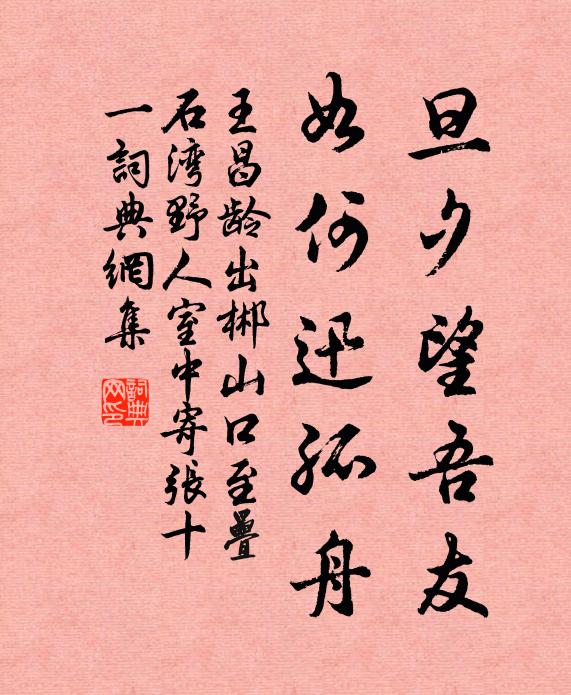 旦夕望吾友
如何迅孤舟
王昌龄出郴山口至疊
石湾野人室中寄張十
一詞典網集
詞典网印